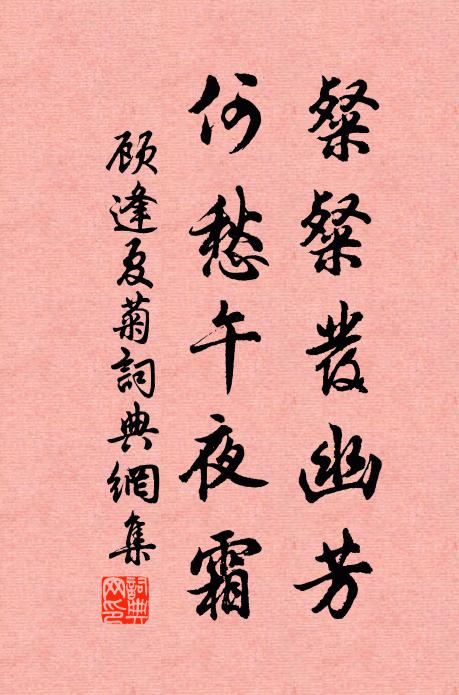 粲粲發幽芳
何愁午夜霜
顾逢夏菊詞典網集
詞典网印